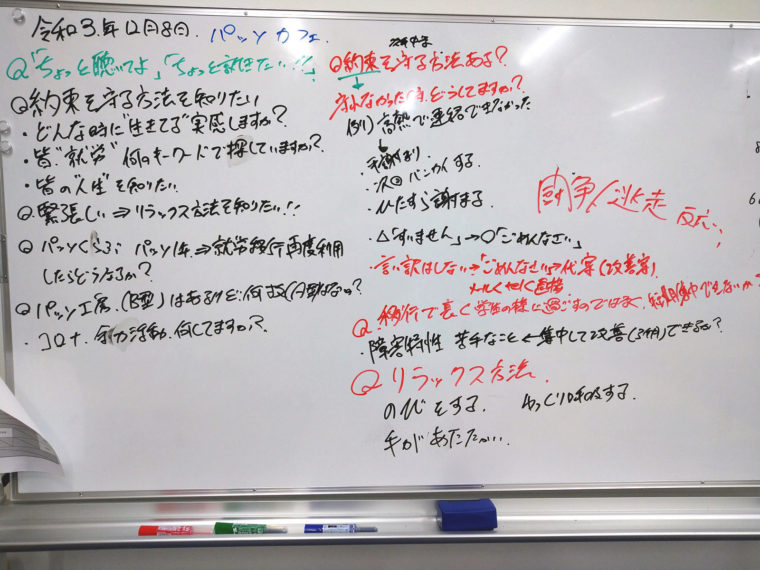 令和3.年12月8日. パッソカフェ.
Q「ちょっと聴いてよ」「ちょっと訊きたい!!」
Q約束を守る方法を知りたい
・どんな時に"生きてる"実感しますか?
・皆"就労"何のキーワードで探していますか?
・皆の"人生"を知りたい
Q.緊張しい⇒リラックス方法を知りたい!!
Q パッソくらぶ パッソ1年⇒就労移行再度利用
したらどうなるか?
Q パッソ工房.(B型)はあるけど何故(A型)はないの?
・コロナ.余力活動.何してますか?
Q約束を守る方法ある?
守れなかった時どうしてますか?
例)高熱で連絡できなかった
・平謝り
・次回バンカイする
・ひたすら謝まる
・△「すいません」→○「ごめんなさい」
言い訳はしない→「ごめんなさい」→代案(改善案)
闘争/逃走 反応!
Q.移行で長く学生の様に過ごすのではなく、短期集中できないか?
・障害特性 苦手なこと←集中して改善(3ヶ月)できるか?
Q リラックス方法.
のびをする. ゆっくり呼吸する.
手があたたかい..